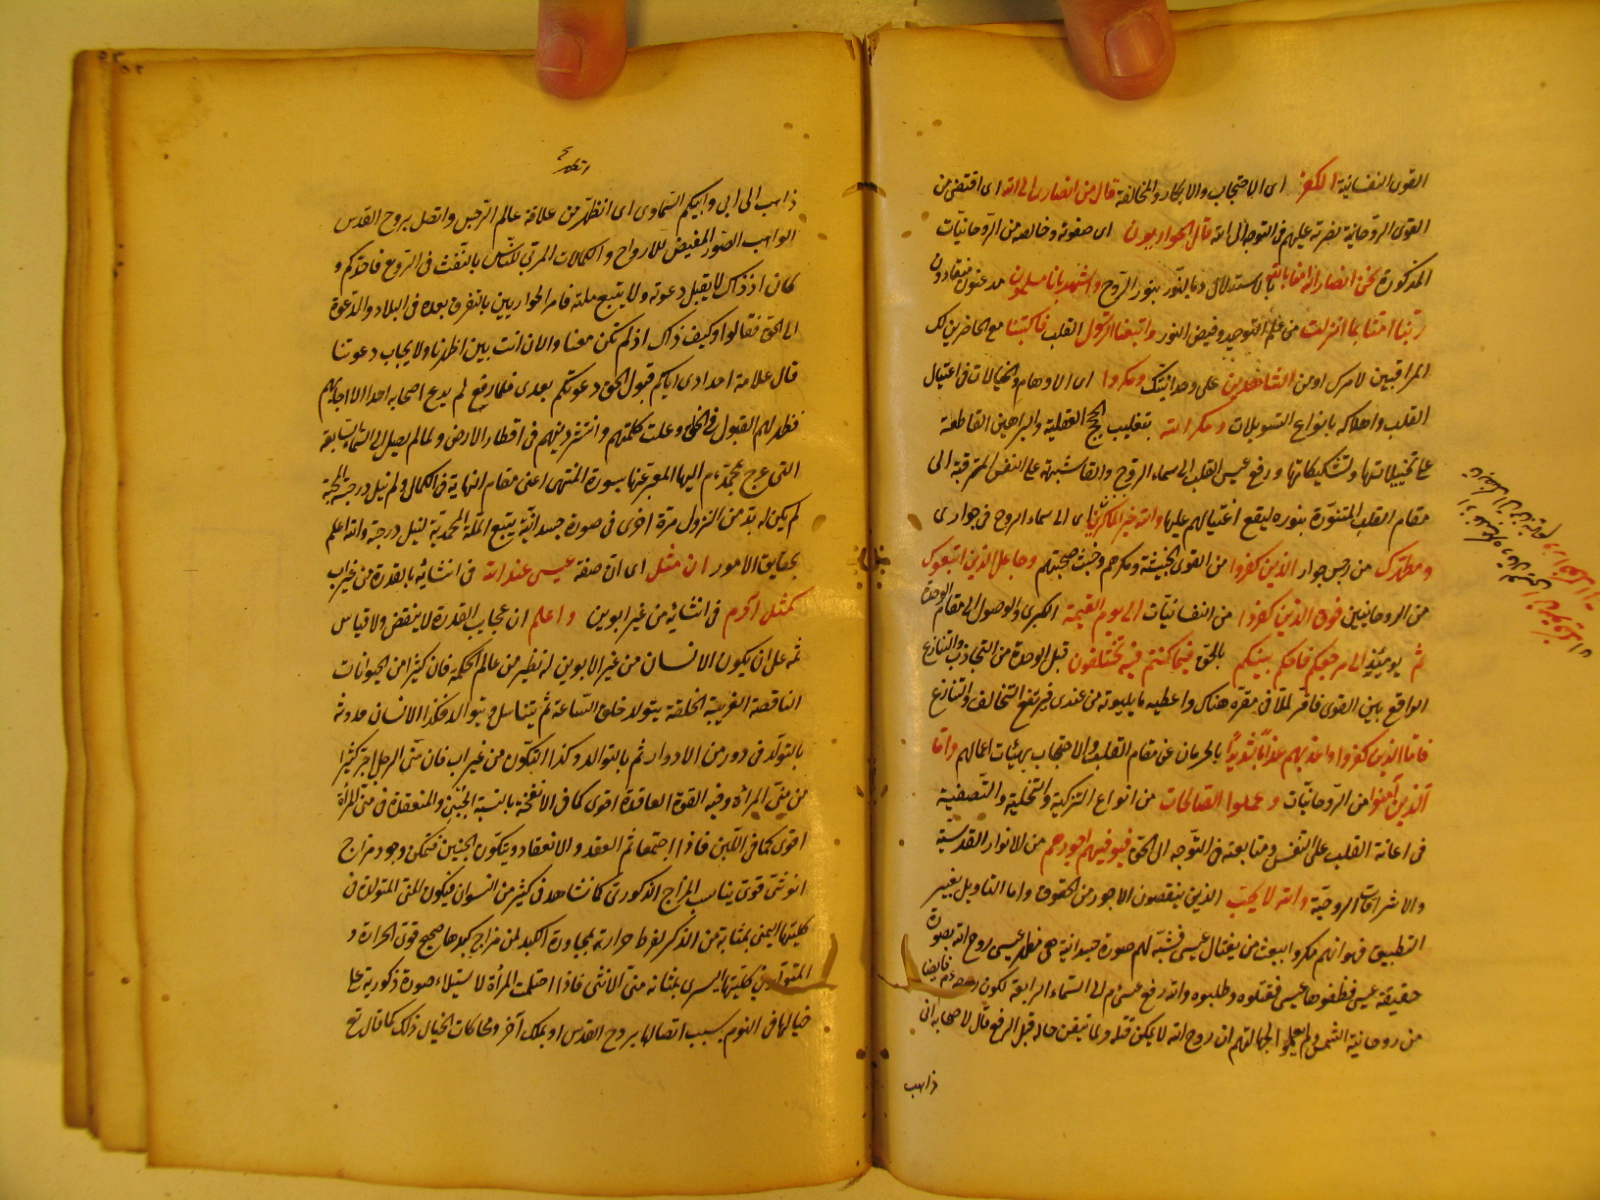 القوى النفسانية الكفر اى الاحتجاب والانكار والمخالفة قال من انصارى الى الله اى اقتضى من
القوى الروحانية نصرته عليهم فى التوجه الى الله قال الحواريون اى صفوته وخالصته من الروحانيات
المذكورة نحن انصار الله امنا بالله بالاستدلال و بالتنور بنور الروح واشهد بانا مسلمون مذعنون منقادون
ربنا امنا بما انزلت من علم التوحيد وفيض النور واتبعنا الرسول القلب فاكتبنا مع الحاضرين لك
المراقبين لامرك او من الشاهدين على وحدانيتك ومكروا اى الاوهام والخيالات فى اغتيال
القلب واهلاكه بانواع التسويلات ومكر الله بتغليب الحجج العقلية والبراهين القاطعة
على تخييلاتها وتشكيكاتها ورفع عيسى القلب الى سماء الروح والقاء شبهه على النفس المترقية الى
مقام القلب المتنورة بنوره ليقع اغتيالهم عليها والله خير الماكرين اى الى سماء الروح فى جوارى
ومطهرك من رجس جوار الذين كفروا من القوى الخبيثة ومكرهم وخبث صحبتهم وجاعل الذين اتبعوك
من الروحانيين فوق الذين كفروا من النفسانيات الى يوم القيمة الكبرى والوصول الى مقام الوحدة
ثم يومئذ الى مرجعكم فاحكم بينكم بالحق فيما كنتم فيه تختلفون قبل الوحدة من التجاذب والتنازع
الواقع بين القوى فاقر كلا فى مقره هناك واعطيه ما يليق به من عندى فيرتفع التخالف والتنازع
فاما الذين كفروا فاعذبهم عذابا شديدا بالحرمان عن مقام القلب والاحتجاب بهيئات اعمالهم واما
الذين آمنوا من الروحانيات وعملوا الصالحات من انواع التزكية والتحلية والتصفية
فى اعانة القلب على النفس ومتابعته فى التوجه الى الحق فيوفيهم اجورهم من الانوار القدسية
والاشراقات الروحية والله لا يحب الذين ينقصون الاجور من الحقوق واما التاويل بغير
التطبيق فهو انهم مكروا ببعث من يغتال عيسى فشبه لهم صورة جسدانية هى مظهر عيسى روح الله بصورة
حقيقة عيسى فظنوها عيسى فقتلوه وصلبوه والله رفع عيسى ع م الى السماء الرابعة لكون روحه ع م فايضا
من روحانية الشمس ولم يعلموا لجهالتهم ان روح الله لا يمكن قتله ولما تيقن حاله قبل الرفع قال لاصحابه انى
ذاهب
ذاهب الى ابى وابيكم السماوى اى اتطهر من علاقة عالم الرجس واتصل بروح القدس
الواهب الصور المفيض للارواح والكمالات المربى للناس بالنفث فى الروع فاحدكم و
كان اذ ذاك لا يقبل دعوته ولا يتبع ملته فامر الحواريين بالتفرق بعده فى البلاد والدعوة
الى الحق فقالوا وكيف ذاك اذ لم تكن معنا والان انت بين اظهرنا ولا يجاب دعوتنا
قال علامة امدادى اياكم قبول الخلق دعوتكم بعدى فلما رفع لم يدع اصحابه احدا الا اجابهم
فظهر لهم القبول فى الخلق وعلت كلمتهم وانتشر دينهم فى اقطار الارض ولما لم يصل الى السماء السابعة
التى عرج بمحمد ع م اليها المعبر عنها بسدرة المنتهى اعنى مقام النهاية فى الكمال ولم ينل درجة المحبة
لم يكن له بد من النزول مرة اخرى فى صورة جسدانية يتبع الملة المحمدية لنيل درجته والله اعلم
بحقايق الامور ان مثل اى ان صفة عيسى عند الله فى انشائه بالقدرة من غير اب
كمثل آدم فى انشائه من غير ابوين واعلم ان عجايب القدرة لا ينقضى ولا قياس
ثمه على ان يكون الانسان من غير الابوين له نظير من عالم الحكمة فان كثيرا من الحيوانات
الناقصة الغريبة الخلقة يتولد خلق الساعة ثم يتناسل ويتوالد فكذا الانسان حدوثه
بالتولد فى دور من الادوار ثم بالتوالد وكذا التكون من غير اب فان منى الرجل احر كثيرا
من منى المراة وفيه القوة العاقدة اقوى كما فى الانفحة بالنسبة الى الجبن والمنعقدة فى منى المرأة
اقوى كما فى اللبن فاذا اجتمعا تم العقد والانعقاد ويتكون الجنين فيمكن وجود مزاج
انوثى قوى يناسب المزاج الذكورى كما نشاهد فى كثير من النسوان فيكون المنى المتولد فى
كليتها اليمنى بمثابة منى الذكر لفرط حرارته بمجاورة الكبد لمن مزاج كبدها صحيح قوى الحرارة و
المتولد فى كليتها اليسرى بمثابة منى الانثى فاذا احتلمت المرأة لاستيلاء صورة ذكورية على
خيالها فى النوم بسبب اتصالها بروح القدس او بملك آخر ومحاكات الخيال ذلك كما قال تع